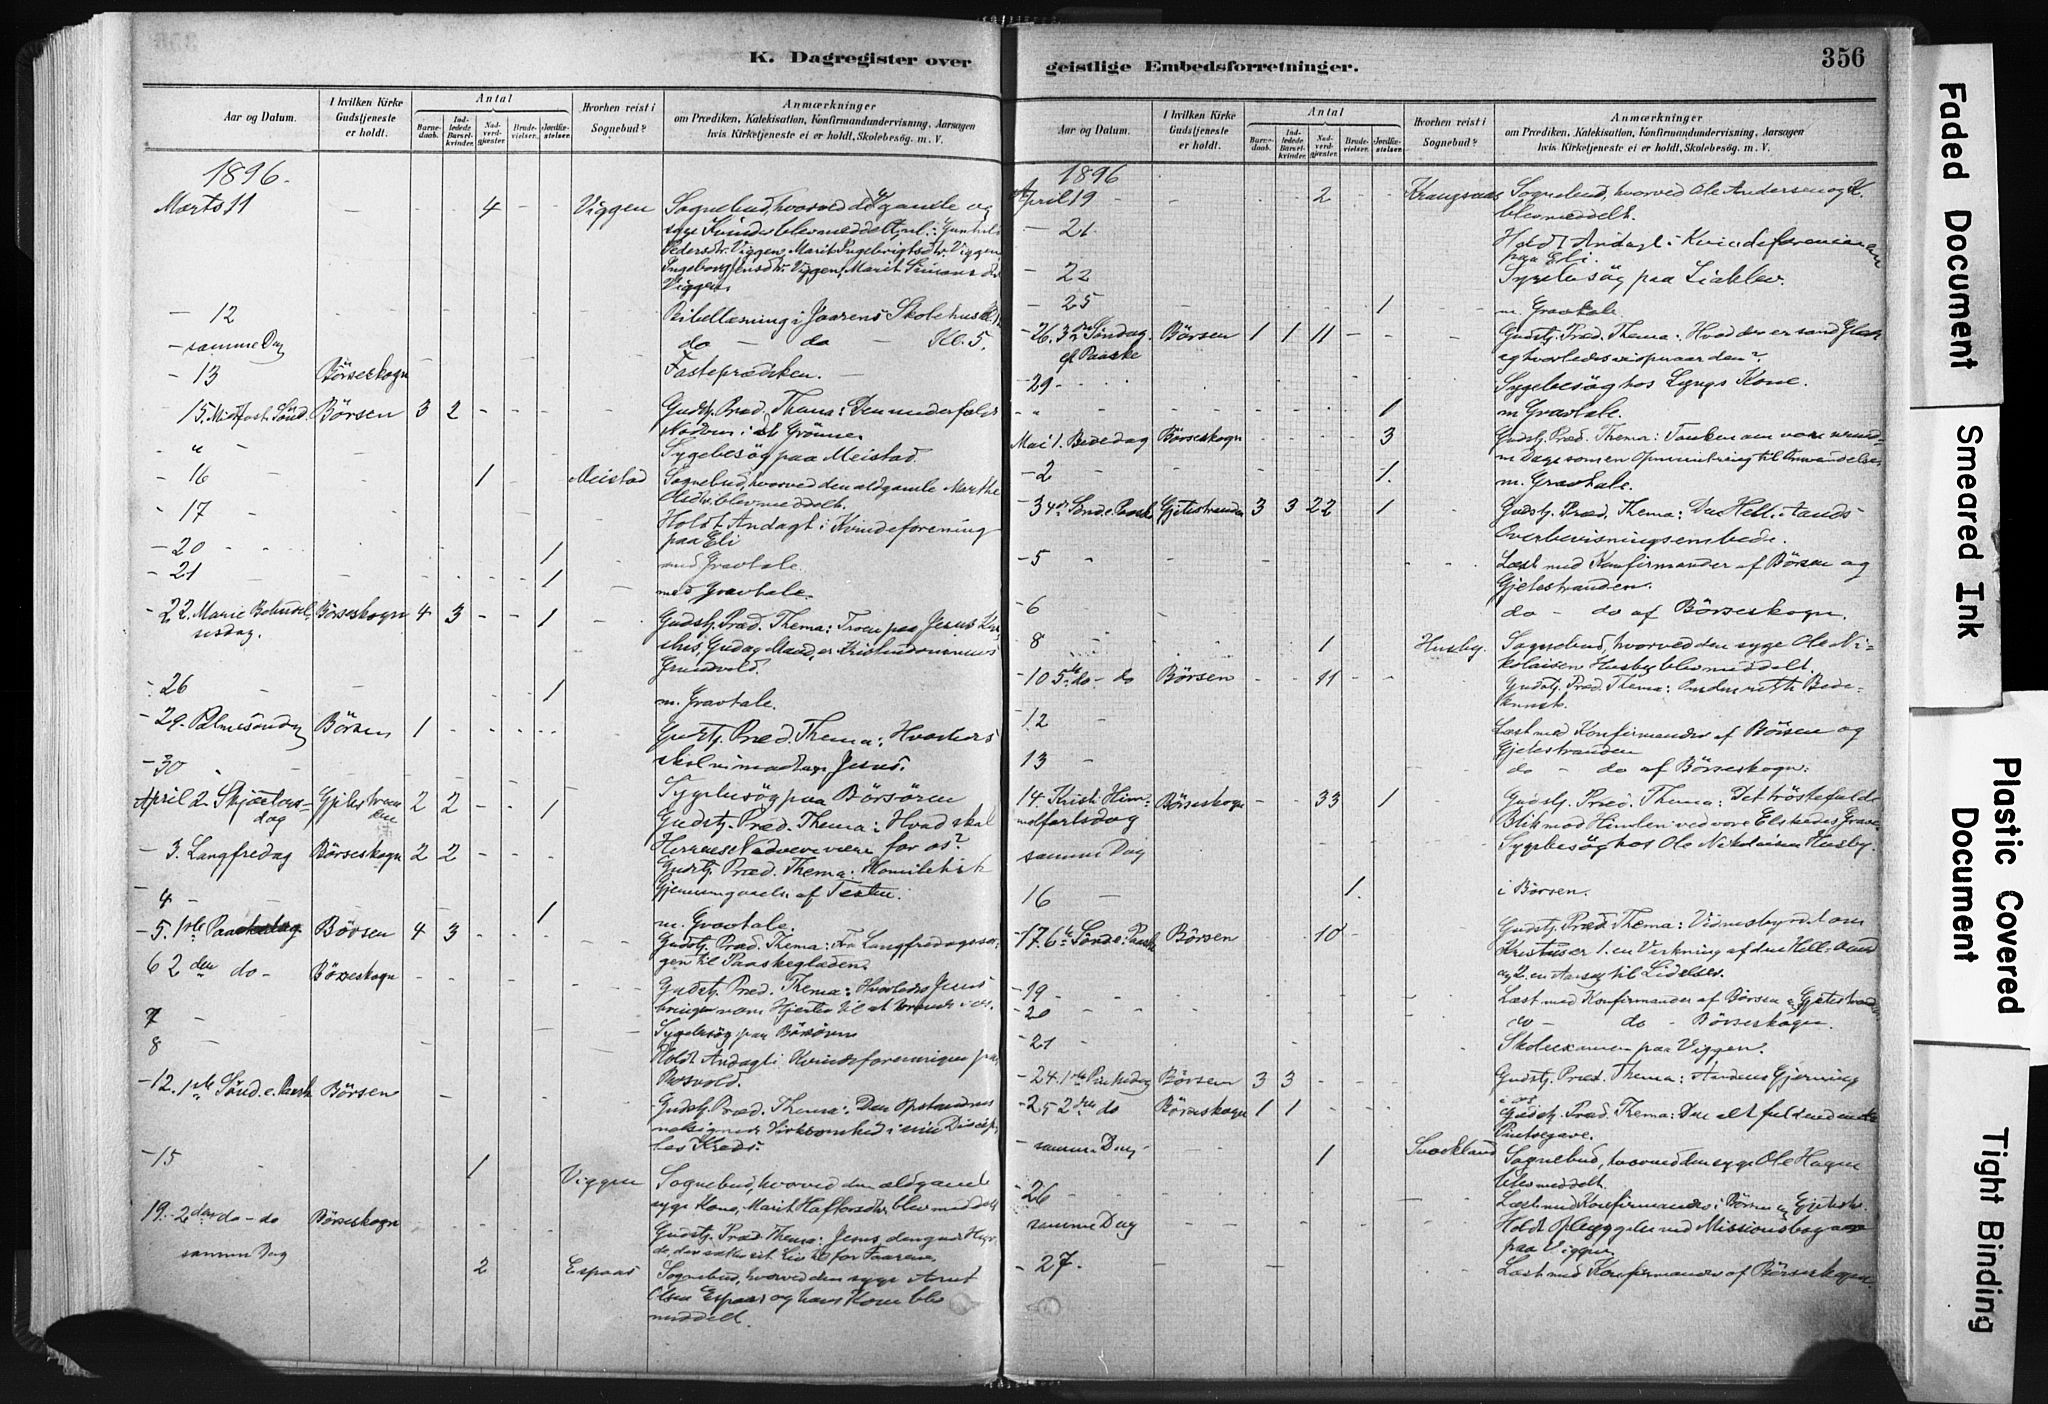 K. Dagregister over
Aar og Datum.
I hvilken Kirke Gudstjeneste er holdt.
Antal
Barnedaab.
Indledede Barselkvinder.
Nadverdgjester
Brudevielser.
Jordfæstelser.
Hvorhen reist i Sognebud?
Anmærkninger
om Prædiken, Katekisation, Konfirmandundervisning, Aarsagen
hvis Kirketjeneste ei er holdt, Skolebesøg. m. V.
1896.
Marts 11 - - 4 - - Viggen Sognebud, hvorved
syge Kvinder blev meddelt,
Pedersdtr. Viggen, Marit Ingebrigtsdtr. Viggen
Ingeborg Jensdtr. Viggen, Marit
Viggen
- 12 Bibellæsning i Jaarens Skolehus
- samme Dag do - do - Kl. 5.
- 13 Børseskogn Fasteprædiken.
- 15. Midfast. Sönd. Börsen 3 2 - - - Gudstj. Præd. Thema: Den underfulde
Nadver i det Grönne
- " Sygebesög paa Meistad.
- 16 1 Meistad Sognebud, hvorved den aldgamle Marthe
Olsdtr. blev meddelt.
- 17 Holdt Andagt i Kvindeforening
paa Eli
- 20 1 med Gravtale.
- 21 1 med Gravtale.
- 22. Marie Bebudelsesdag. Börseskogn 4 3 - - 1 Gudstj. Præd. Thema: Troen paa Jesus Kristus,
Gud og Mand, er Kristendommens
Grundvold.
- 26 1 m. Gravtale.
- 29. Palmesöndag Börsen 1 Gudstj. Præd. Thema: Hvorledes
skal vi modtage Jesus.
- 30 Sygebesög paa Börsören
April 2. Skjærtorsdag Gjetestranden 2 2 - - 1 Gudstj. Præd. Thema: Hvad skal
Herrens Nadvere være for os?
- 3. Langfredag Börseskogn 2 2 - - - Gudstj. Præd. Thema: Homiletisk
Gjennemgaaelse af Texten.
- 4 1 m. Gravtale.
- 5. 1ste Paaskedag Börsen 4 3 - - - Gudstj. Præd. Thema: Fra Langfredagssorgen
til Paaskeglæden.
6 2den do - Börseskogn Gudstj. Præd. Thema: Hvorledes Jesus
bringer vore Hjerter til at brænde i os.
7 Sygebesög paa Börsören
8 Holdt Andagt i Kvindeforeningen paa
Rosvold.
- 12. 1ste Sönd. e. Paaske Börsen Gudstj. Præd. Thema: Den Opstandnes
velsignede Virksomhed i sine Disciples
Kreds.
- 15 1 Viggen Sognebud, hvorved den aldgamle
syge Kone, Marit Haftorsdtr. blev meddelt
19. - 2den do - do Börseskogn Gudstj. Præd. Thema: Jesus, den gode Hyrde,
der sætter sit Liv til for Faarene.
samme Dag 2 Espaas Sognebud, hvorved den syge Arnt
Olsen Espaas og hans Kone blev
meddelt.
geistlige Embedsforretninger.
356
Aar og Datum.
I hvilken Kirke Gudstjeneste er holdt.
Antal
Barnedaab.
Indledede Barselkvinder.
Nadverdgjester
Brudevielser.
Jordfæstelser.
Hvorhen reist i Sognebud?
Anmærkninger
om Prædiken, Katekisation, Konfirmandundervisning, Aarsagen
hvis Kirketjeneste ei er holdt, Skolebesøg. m. V.
1896
April 19 2 Krangsaas Sognebud, hvorved Ole Andersen og K.
blev meddelt.
- 21 Holdt Andagt i Kvindeforeningen
paa Eli.
- 22 Sygebesög paa
- 25 1 m. Gravtale
- 26. 3die Söndag ef. Paaske Börsen 1 1 11 - - Gudstj. Præd. Thema: Hvad der er sand Glæde
og hvorledes vi opnaar den?
- 29 Sygebesög hos Kone.
- " 1 m Gravtale.
Mai 1. Bededag Börseskogn 3 Gudstj. Præd. Thema: Tanken om vore
Dage som en Opmuntring til Omvendelse
- 2 1. m. Gravtale.
- 3 4de Sönd. e. Paaske Gjetestranden 3 3 22 1 Gudstj. Præd. Thema: Den Hell. Aands
Overbevisningsembede.
- 5 Læst med Konfirmander af Börsen og
Gjetestranden.
- 6 do - do af Börseskogn.
8 1 Husby. Sognebud, hvorved den syge Ole Nikolaisen
Husby blev meddelt.
- 10 5te do - do Börsen - - 11 - - Gudstj. Præd. Thema:
- 12 Læst med Konfirmander af Börsen og
Gjetestranden
13 do - do af Börseskogn.
14. Kristi Himmelfartsdag Börseskogn - - 33 1 Gudstj. Præd. Thema: Det tröstefulde
Blik mod Himlen ved vore Elskedes Grave.
samme Dag Sygebesög hos Ole Nikolaisen Husby.
16 1. i Börsen.
- 17. 6te Sönd. e. Paaske Börsen 10 Gudstj. Præd. Thema: Vidnesbyrdet om
Kristus er 1. en Virkning af den Hell. Aand
og 2. en Aarsag til Lidelser.
- 19 Læst med Konfirmander af Börsen og Gjetestranden
- 20 do - do - Börseskogn.
- 21 Skolexamen paa Viggen.
- 24. 1ste Pinsedag Börsen 3 3 Gudstj. Præd. Thema: Aandens Gjerning
i os
- 25 2den do Börseskogn 1 1 Gudstj. Præd. Thema: Den alt
Pintsegave.
samme Dag 1 Sognebud, hvorved den syge Ole Hagen
blev meddelt.
- 26 Læst med Konfirmander i Börsen og Gjetestr.
samme Dag Holdt Opbyggelse med Missionsbog
paa Viggen
- 27. Læst med Konfirmander af Börseskogn
Faded Document
Smeared Ink
Plastic Covered Document
Tight Binding